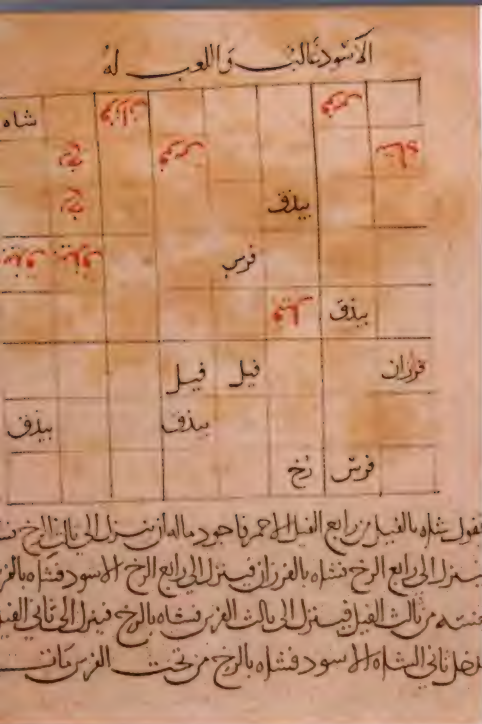 الاسود غالب واللعب له
فرس فرزان شاه
شاه فرس رخ
بيذق رخ
فرس بيذق بيذق
بيذق فيل
فرزان فيل فيل
بيذق بيذق
فرس رخ
شاه بالفيل من رابع الفيل الاحمر فاجود ماله ان ينزل الى ثالث الرخ
فينزل الى رابع الرخ فشاه بالفرزان فينزل الى رابع الرخ الاسود فشاه
من ثالث الفيل فينزل الى ثالث الفرس فشاه بالرخ فينزل الى ثاني الفيل
ثاني الشاه الاسود فشاه بالرخ من تحت الفرس مات